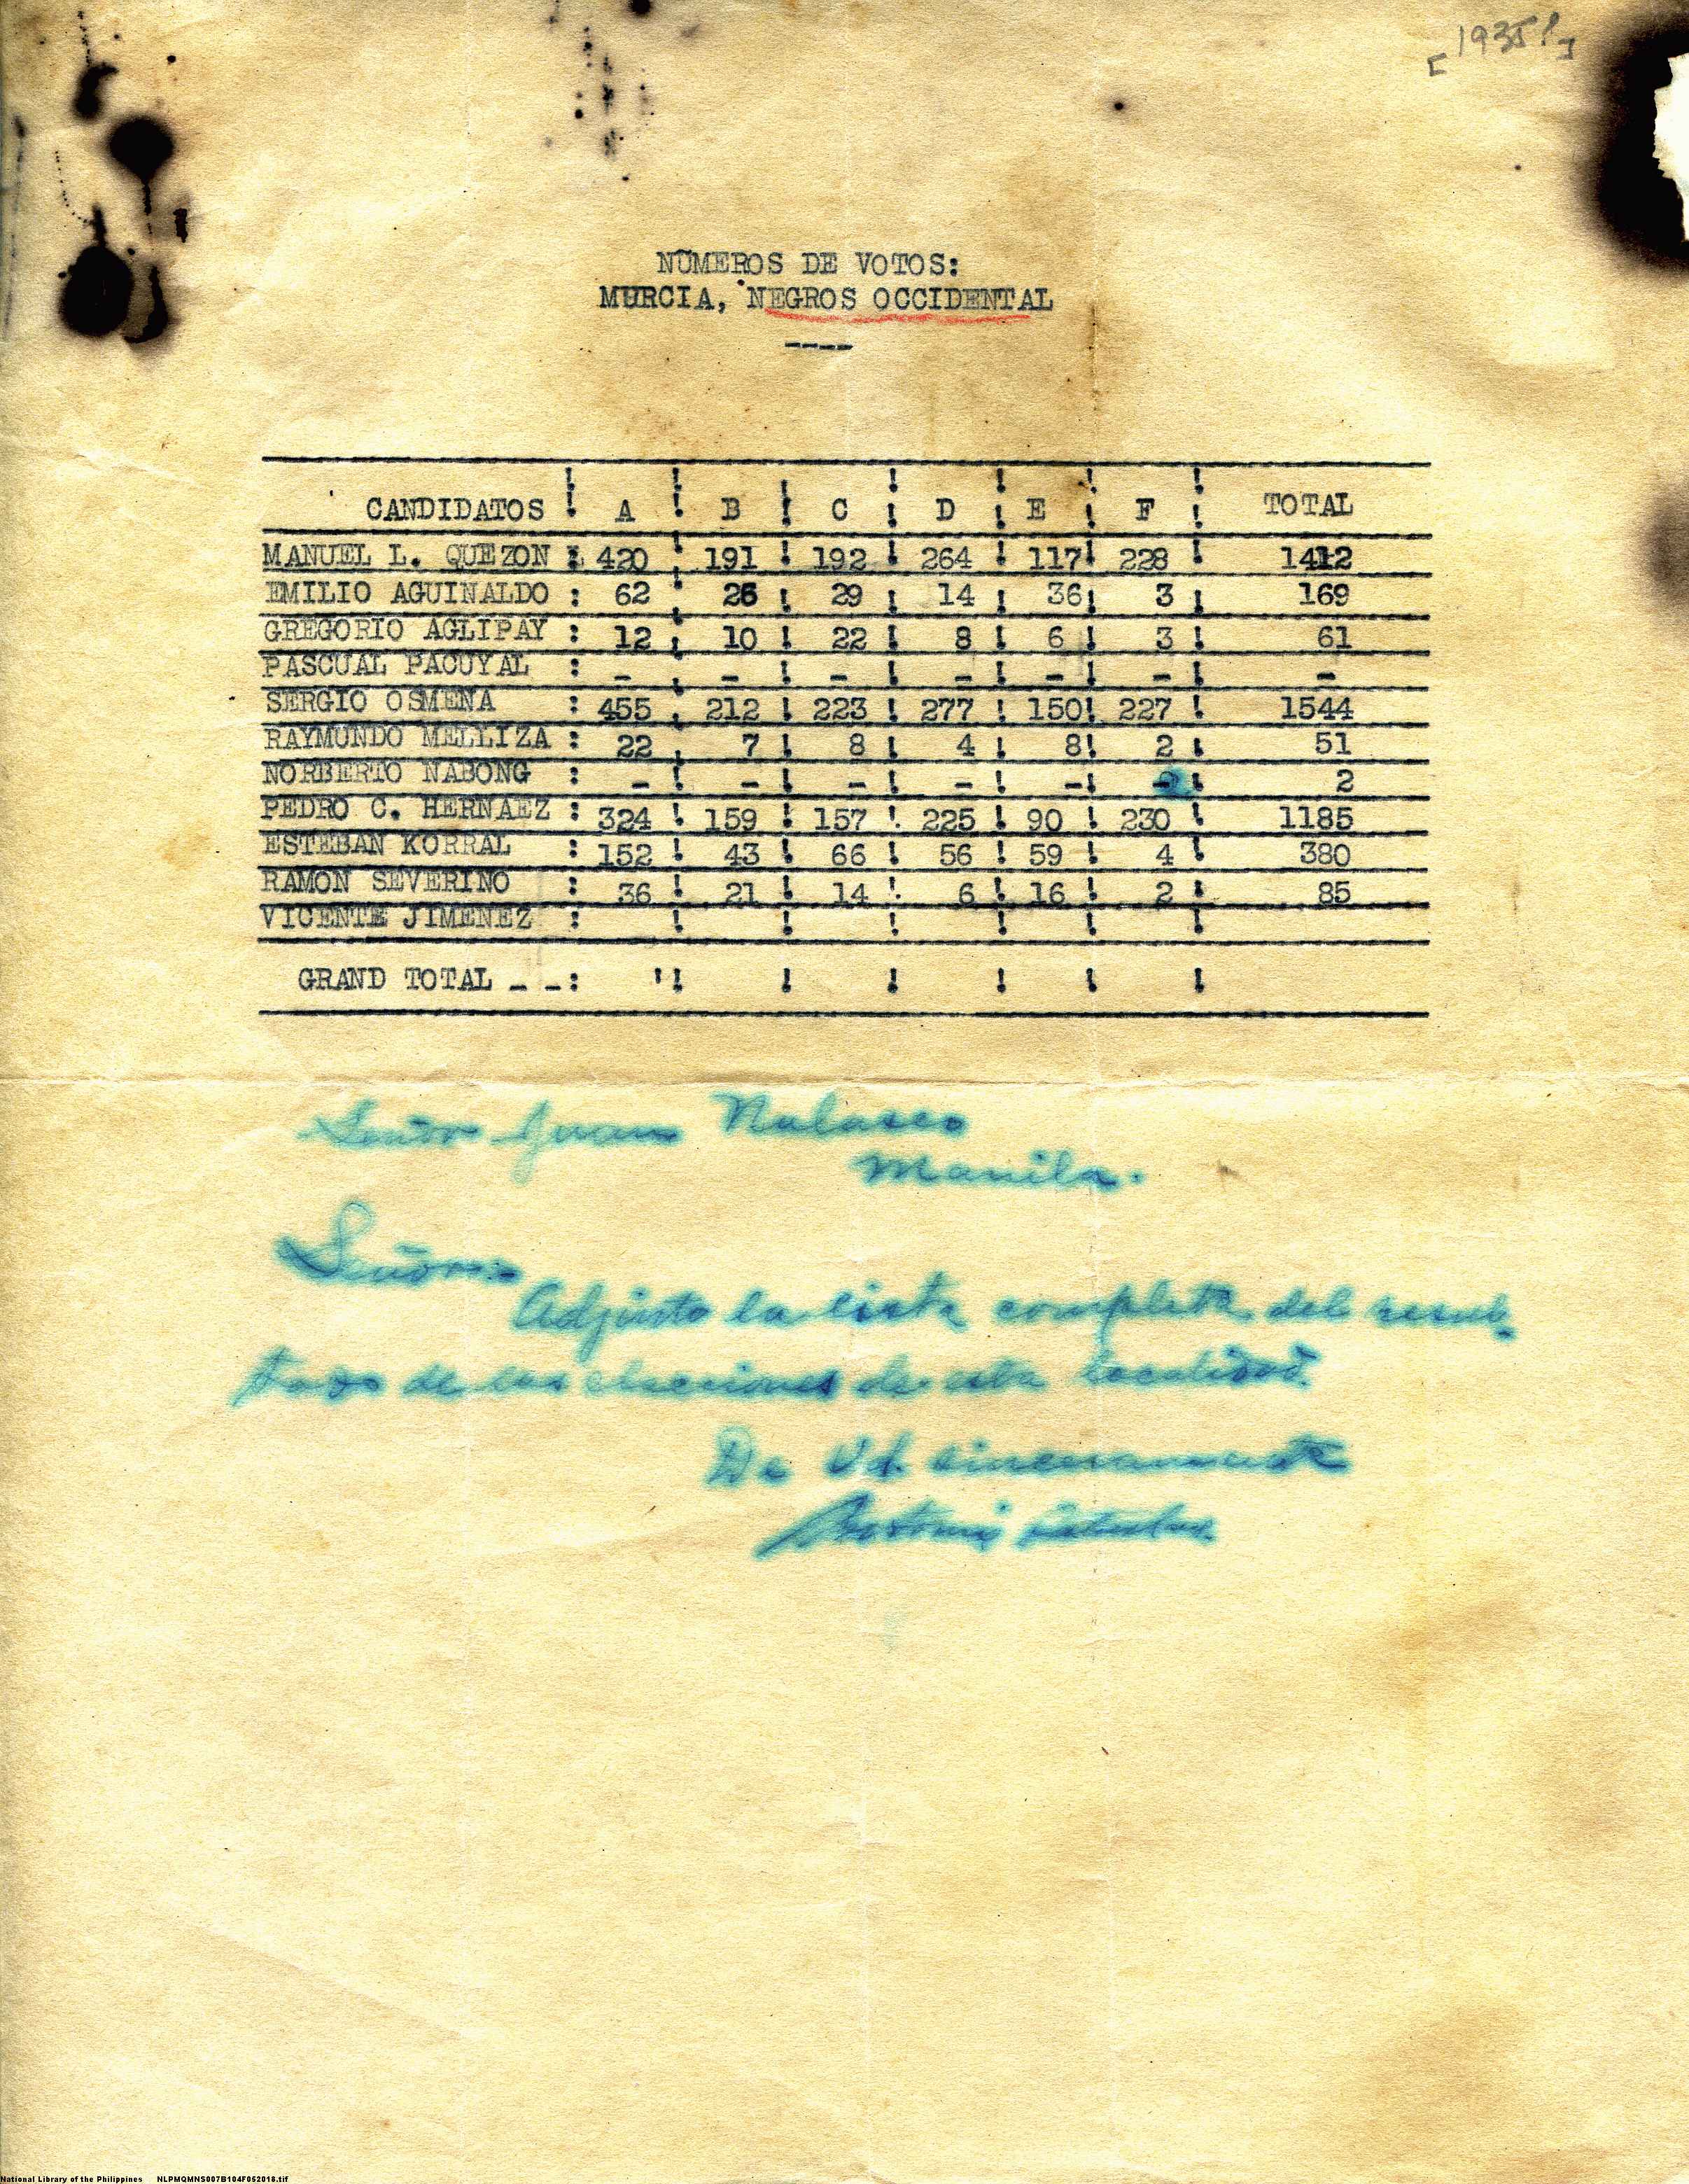 [1935?]
NŪMEROS DE VOTOS:
MURCIA, NEGROS OCCIDENTAL
----
CANDIDATOS : A ! B ! C ! D ! E ! F ! TOTAL
MANUEL L. QUEZON : 420 ! 191 ! 192 ! 264 ! 117! 228 ! 1412
EMILIO AGUINALDO : 62 ! 26 ! 29 ! 14 ! 36! 3 ! 169
GREGORIO AGLIPAY : 12 ! 10 ! 22 ! 8 ! 6 ! 3 ! 61
PASCUAL PACUYAL : - ! - ! - ! - ! - ! - ! -
SERGIO OSMENA : 455 ! 212 ! 223 ! 277 ! 150! 227 ! 1544
RAYMUNDO MELLIZA : 22 ! 7 ! 8 ! 4 ! 8! 2 ! 51
NORBERTO NABONG : - ! - ! - ! - ! -! 2 ! 2
PEDRO C. HERNAEZ : 324 ! 159 ! 157 ! 225 ! 90 ! 230 ! 1185
ESTEBAN KORRAL : 152 ! 43 ! 66 ! 56 ! 59 ! 4 ! 380
RAMON SEVERINO : 36 ! 21 ! 14 ! 6 ! 16 ! 2 ! 85
VICENTE JIMENEZ : ! ! ! ! ! !
GRAND TOTAL _ _: ! ! ! ! ! !
Señor Juan Nolasco
Manila.
Señor:-
Adjunto la lista completa del resul-
tado de las elecciones de esta localidad.
De Ud. sinceramente
National Library of the Philippines NLPMQMNS007B104F052018.tif